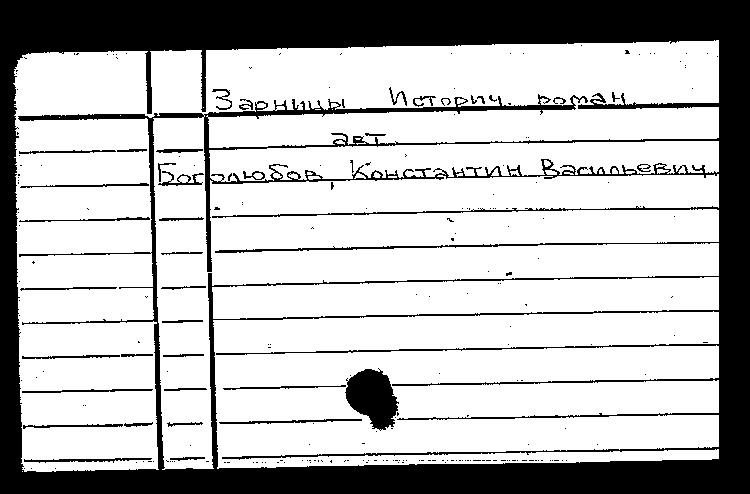 Зарницы Историч. роман
авт
Боголюбов, Константин Васильевич